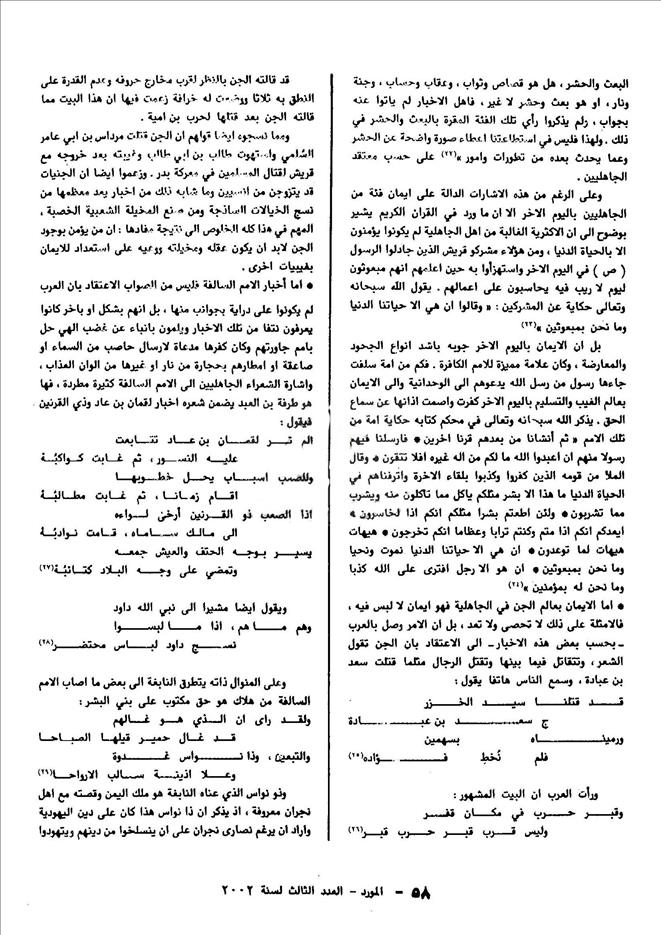 البعث والحشر ، هل هو قصاص وثواب ، وعقاب وحساب ، وجنة
ونار ، او هو بعث وحشر لا غير ، فاهل الاخبار لم ياتوا عنه
بجواب ، رلم يذكروا رأي تلك الفئة المقرة بالبعث والحشر في
ذلك . ولهذا فليس في استطاعتنا اعطاء صورة واضحة عن الحشر
وعما يحدث بعده من تطورات وامور »(٢٢) على حسب معتقد
الجاهليين .
وعلى الرغم من هذه الاشارات الدالة على ايمان فئة من
الجاهليين باليوم الاخر الا ان ما ورد في القران الكريم يشير
بوضوح الى ان الاكثرية الغالبة من اهل الجاهلية لم يكونوا يؤمنون
الا بالحياة الدنيا ، ومن هؤلاء مشركو قريش الذين جادلوا الرسول
( ص ) في اليوم الاخر واستهزأوا به حين اعلمهم انهم مبعوثون
ليوم لا ريب فيه يحاسبون على اعمالهم . يقول الله سبحانه
وتعالى حكاية عن المشركين : « وقالوا ان هي الا حياتنا الدنيا
وما نحن بمبعوثين »(٢٣)
بل ان الايمان باليوم الاخر جوبه باشد انواع الجحود
والمعارضة ، وكان علامة مميزة للامم الكافرة . فكم من امة سلفت
جاءها رسول من رسل الله يدعوهم الى الوحدانية والى الايمان
بعالم الغيب والتسليم باليوم الاخر كفرت واصمت اذانها عن سماع
الحق . يذكر الله سبحانه وتعالى في محكم كتابه حكاية امة من
تلك الامم « ثم أنشانا من بعدهم قرنا اخرين * فارسلنا فيهم
رسولا منهم ان اعبدوا الله ما لكم من اله غيره افلا تتقون * وقال
الملأ من قومه الذين كفروا وكذبوا بلقاء الاخرة واترفناهم في
الحياة الدنيا ما هذا الا بشر مثلكم ياكل مما تاكلون منه ويشرب
مما تشربون * ولئن اطعتم بشرا مثلكم انكم اذا لخاسرون *
ايعدكم انكم اذا متم وكنتم ترابا وعظاما انكم تخرجون * هيهات
هيهات لما توعدون * ان هي الا حياتنا الدنيا نموت ونحيا
وما نحن بمبعوثين * ان هو الا رجل افترى على الله كذبا
وما نحن له بمؤمنين »(٢٤)
* اما الايمان بعالم الجن في الجاهلية فهو ايمان لا لبس فيه ،
فالامثلة على ذلك لا تحصى ولا تعد ، بل ان الامر وصل بالعرب
ـ بحسب بعض هذه الاخبار ـ الى الاعتقاد بان الجن تقول
الشعر ، وتتقاتل فيما بينها وتقتل الرجال مثلما قتلت سعد
بن عبادة ، وسمع الناس هاتفا يقول :
قـــد قتلنـــا سيـــد الخـــزر
ج سعـــد بن عبـــادة
ورمينـــاه بسهمين
فلم نُخطِ فـــؤاده(٢٥)
ورأت العرب ان البيت المشهور :
وقبـــر حـــرب في مكـــان قفـــر
وليس قـــرب قبـــر حـــرب قبـــر(٢٦)
قد قالته الجن بالنظر لقرب مخارج حروفه وعدم القدرة على
النطق به ثلاثا ووضعت له خرافة زعمت فيها ان هذا البيت مما
قالته الجن بعد قتلها لحرب بن امية .
ومما نسجوه ايضا قولهم ان الجن قتلت مرداس بن ابي عامر
السُلمي واستهوت طالب بن ابي طالب وغيبته بعد خروجه مع
قريش لقتال المسلمين في معركة بدر . وزعموا ايضا ان الجنيات
قد يتزوجن من انسيين وما شابه ذلك من اخبار يعد معظمها من
نسج الخيالات الساذجة ومن صنع المخيلة الشعبية الخصبة ،
المهم في هذا كله الخلوص الى نتيجة مفادها : ان من يؤمن بوجود
الجن لابد ان يكون عقله ومخيلته ووعيه على استعداد للايمان
بغيبيات اخرى .
* اما أخبار الامم السالفة فليس من الصواب الاعتقاد بان العرب
لم يكونوا على دراية بجوانب منها ، بل انهم بشكل او باخر كانوا
يعرفون نتفا من تلك الاخبار ويلمون بانباء عن غضب الهي حل
بامم جاورتهم وكان كفرها مدعاة لارسال حاصب من السماء او
صاعقة او امطارهم بحجارة من نار او غيرها من الوان العذاب ،
واشارة الشعراء الجاهليين الى الامم السالفة كثيرة مطردة ، فها
هو طرفة بن العبد يضمن شعره اخبار لقمان بن عاد وذي القرنين
فيقول :
الم تـــر لقمـــان بن عـــاد تتـــابعت
عليـــه النســـور ، ثم غـــابت كـــواكبُـــهْ
وللصعب اسبـــاب يحـــل خطـــوبهـــا
اقـــام زمـــانـــا ، ثم غـــابت مطـــالبُـــهْ
اذا الصعب ذو القـــرنين أرخى لـــواءه
الى مـــالك ســـامـــاه ، قـــامت نوادبُـــهْ
يسيـــر بـــوجـــه الحتف والعيش جمعـــه
وتمضي على وجـــه البـــلاد كتـــائبُـــهْ(٢٧)
ويقول ايضا مشيرا الى نبي الله داود
وهم مـــا هم ، اذا مـــا لبســـوا
نســـج داود لبـــاس محتضـــر(٢٨)
وعلى المنوال ذاته يتطرق النابغة الى بعض ما اصاب الامم
السالفة من هلاك هو حق مكتوب على بني البشر :
ولقـــد راى ان الـــذي هـــو غـــالهم
قـــد غـــال حميـــر قيلهـــا الصبـــاحـــا
والتبعين ، وذا نـــواس غـــدوة
وعـــلا اذينـــة ســـالب الارواحـــا(٢٩)
وذو نواس الذي عناه النابغة هو ملك اليمن وقصته مع اهل
نجران معروفة ، اذ يذكر ان ذا نواس هذا كان على دين اليهودية
واراد ان يرغم نصارى نجران على ان ينسلخوا من دينهم ويتهودوا
٥٨ - المورد - العدد الثالث لسنة ٢٠٠٢